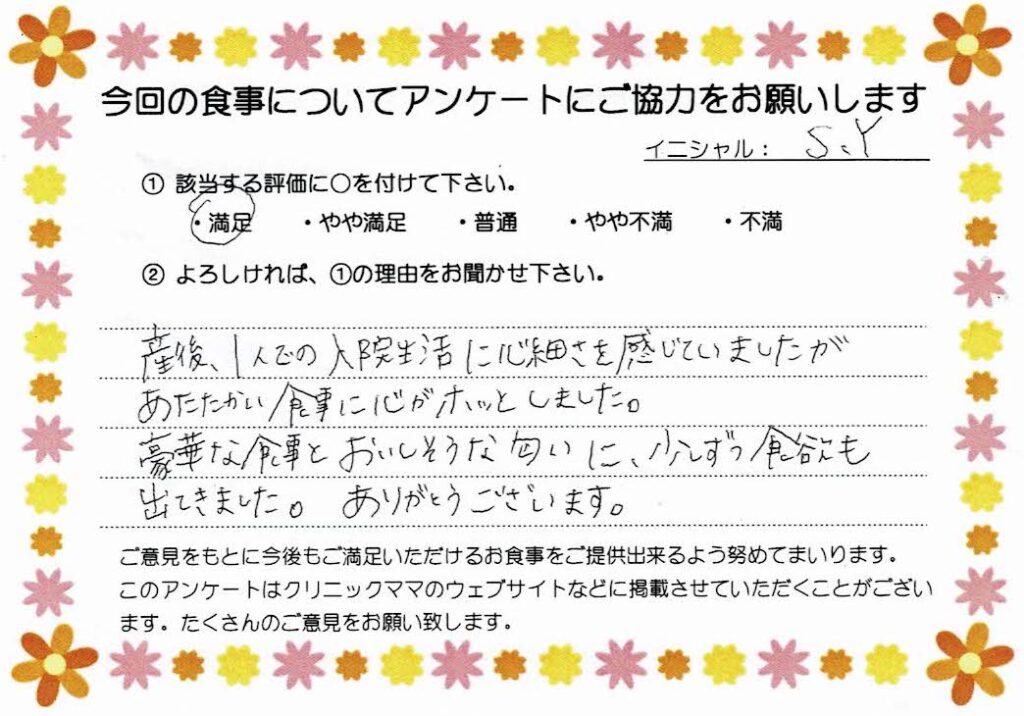 今回の食事についてアンケートにご協力をお願いします
イニシャル： S、Y
① 該当する評価に○を付けて下さい。
・満足 ・やや満足 ・普通 ・やや不満 ・不満
② よろしければ、①の理由をお聞かせ下さい。
産後、1人での入院生活に心細さを感じていましたが
あたたかい食事に心がホッとしました。
豪華な食事とおいしそうな匂いに、少しずつ食欲も
出てきました。 ありがとうございます。
ご意見をもとに今後もご満足いただけるお食事をご提供出来るよう努めてまいります。
このアンケートはクリニックママのウェブサイトなどに掲載させていただくことがござい
ます。たくさんのご意見をお願い致します。